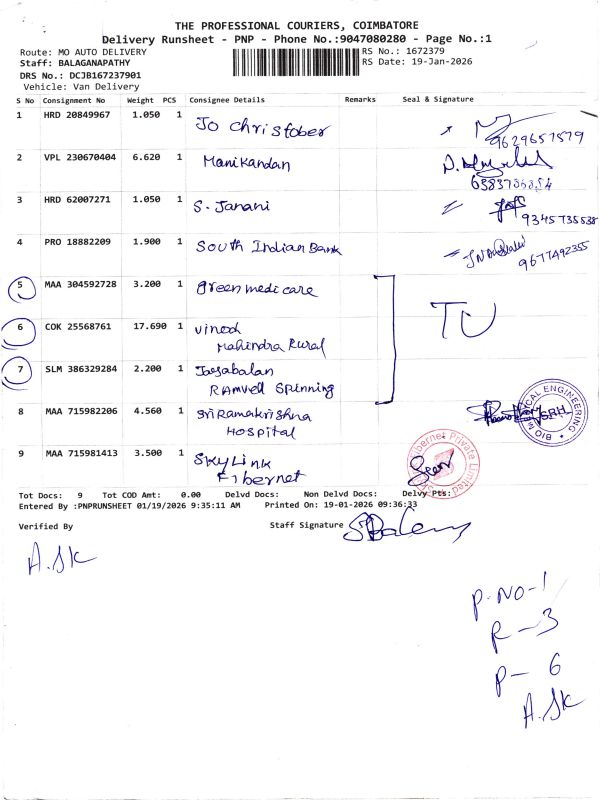 THE PROFESSIONAL COURIERS, COIMBATORE
Delivery Runsheet - PNP - Phone No.:9047080280 - Page No.:1
Route: MO AUTO DELIVERY
RS No.: 1672379
Staff: BALAGANAPATHY
RS Date: 19-Jan-2026
DRS No.: DCJB167237901
Vehicle: Van Delivery
S No Consignment No Weight PCS Consignee Details Remarks Seal & Signature
1 HRD 20849967 1.050 1 Jo christober 9629657579
2 VPL 230670404 6.620 1 Manikandan
3 HRD 62007271 1.050 1 S. Janani 9345735538
4 PRO 18882209 1.900 1 South Indian Bank 9677492355
5 MAA 304592728 3.200 1 Green medicare
TU
6 COK 25568761 17.690 1 vinod
Mahindra Rural
7 SLM 386329284 2.200 1
Ramvell Spinning
8 MAA 715982206 4.560 1 Sri Ramakrishna
Hospital
BIO MEDICAL ENGINEERING
SRH
9 MAA 715981413 3.500 1 SKYLink
Fibernet
Fibernet Private Limited
Tot Docs: 9 Tot COD Amt: 0.00 Delvd Docs: Non Delvd Docs: Delvy Pts:
Entered By :PNPRUNSHEET 01/19/2026 9:35:11 AM Printed On: 19-01-2026 09:36:33
Verified By Staff Signature
A.SK
P.NO-1
R-3
P-6
A.SK